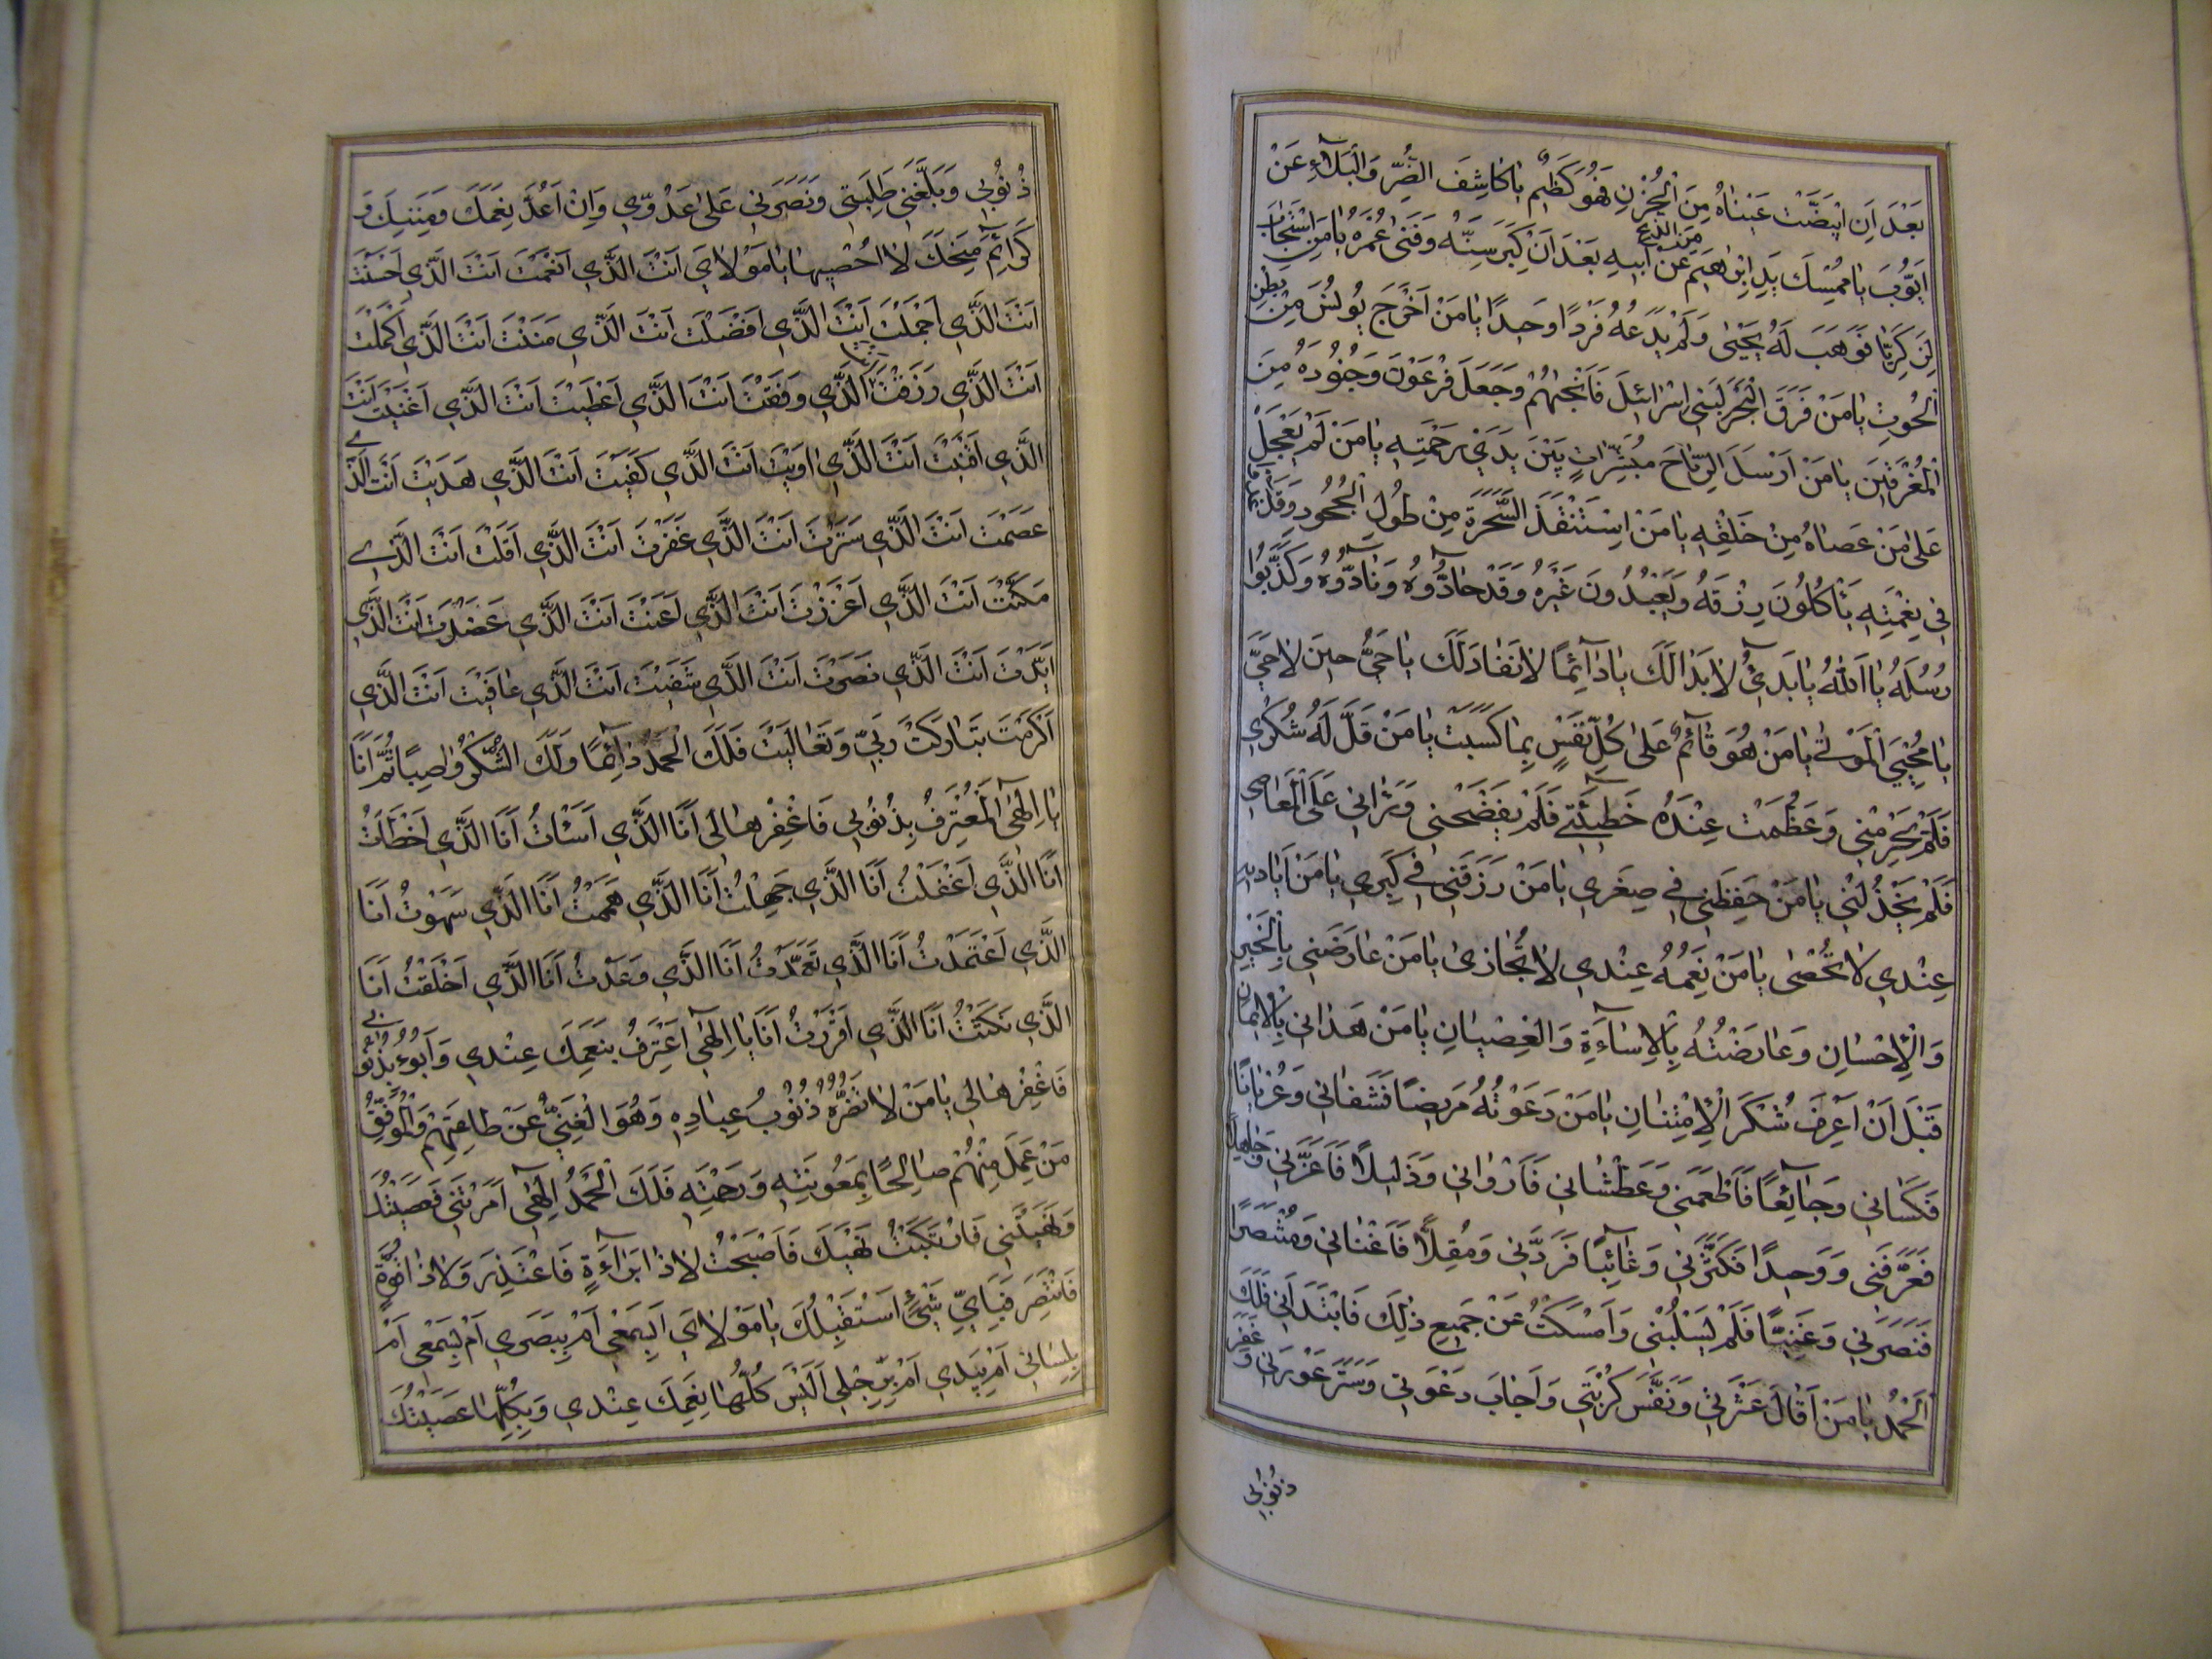 بَعْدَ اَنِ ابْيَضَّتْ عَيْنٰاهُ مِنَ الْحُزْنِ فَهُوَ كَظِيْمٌ يٰا كٰاشِفَ الضُّرِّ وَالْبَلٰآءِ عَنْ
اَيُّوْبَ يٰا مُمْسِكَ يَدِ اِبْرٰاهِيْمَ عَنْ اَبِيهِ بَعْدَ اَنْ كَبِرَ سِنُّهُ وَفَنٰى عُمْرُهُ يٰا مَنِ اسْتَجٰابَ
لِزَكَرِيّٰا فَوَهَبَ لَهُ يَحْيٰى وَلَمْ يَدَعْهُ فَرْدًا وَحِيدًا يٰا مَنْ اَخْرَجَ يُونُسَ مِنْ بَطْنِ
الْحُوتِ يٰا مَنْ فَرَقَ الْبَحْرَ لِبَنِى اِسْرٰائِلَ فَاَنْجٰيهُمْ وَجَعَلَ فِرْعَوْنَ وَجُنُودَهُ مِنَ
الْمُغْرَقِيْنَ يٰا مَنْ اَرْسَلَ الرِّيٰاحَ مُبَشِّرٰاتٍ بَيْنَ يَدَيْ رَحْمَتِهِ يٰا مَنْ لَمْ يَعْجَلْ
عَلٰى مَنْ عَصٰاهُ مِنْ خَلْقِهِ يٰا مَنْ اِسْتَنْقَذَ السَّحَرَةَ مِنْ طُولِ الْجُحُودِ وَقَدْ غَدَوْا
فِي نِعْمَتِهِ يَأْكُلُونَ رِزْقَهُ وَيَعْبُدُونَ غَيْرَهُ وَقَدْ حٰادُّوهُ وَنٰادُّوهُ وَكَذَّبُوا
رُسُلَهُ يٰا اَللّٰهُ يٰا بَدِئُ لٰا بَدَالَكَ يٰا دٰآئِمًا لٰا نَفٰادَ لَكَ يٰا حَيُّ حِيْنَ لٰا حَيَّ
يٰا مُحْيِيَ الْمَوْتٰى يٰا مَنْ هُوَ قٰآئِمٌ عَلٰى كُلِّ نَفْسٍ بِمٰا كَسَبَتْ يٰا مَنْ قَلَّ لَهُ شُكْرِي
فَلَمْ يَحْرِمْنِي وَعَظُمَتْ عِنْدَهُ خَطِيْئَتِي فَلَمْ يَفْضَحْنِي وَيَرٰانِي عَلَى الْمَعٰاصِي
فَلَمْ يَخْذُلْنِي يٰا مَنْ حَفِظَنِي فِي صِغَرِي يٰا مَنْ رَزَقَنِي فِي كِبَرِي يٰا مَنْ اَيٰادِيْهِ
عِنْدِي لٰا تُحْصٰى يٰا مَنْ نِعَمُهُ عِنْدِي لٰا تُجٰازىٰ يٰا مَنْ عٰارَضَنِي بِالْخَيْرِ
وَالْاِحْسٰانِ وَعٰارَضْتُهُ بِالْاِسٰآءَةِ وَالْعِصْيٰانِ يٰا مَنْ هَدٰانِي بِالْاِيْمٰانِ
قَبْلَ اَنْ اَعْرِفَ شُكْرَ الْاِمْتِنٰانِ يٰا مَنْ دَعَوْتُهُ مَرِيضًا فَشَفٰانِي وَعُرْيٰانًا
فَكَسٰانِي وَجٰآئِعًا فَاَطْعَمَنِي وَعَطْشٰانِي فَاَرْوٰانِي وَذَلِيْلًا فَاَعَزَّنِي وَجٰاهِلًا
فَعَرَّفَنِي وَوَحِيدًا فَكَثَّرَنِي وَغٰائِبًا فَرَدَّنِي وَمُقِلًّا فَاَغْنٰانِي وَمُنْتَصِرًا
فَنَصَرَنِي وَغَنِيًّا فَلَمْ يَسْلُبْنِي وَاَمْسَكْتُ عَنْ جَمِيعِ ذٰلِكَ فَابْتَدَأَنِي فَلَكَ
الْحَمْدُ يٰا مَنْ اَقٰالَ عَثْرَتِي وَنَفَّسَ كُرْبَتِي وَاَجٰابَ دَعْوَتِي وَسَتَرَ عَوْرَتِي وَغَفَرَ
ذُنُوْبِي
ذُنُوْبِي وَبَلَّغَنِي طَلِبَتِي وَنَصَرَنِي عَلٰى عَدُوِّي وَاِنْ اَعُدَّ نِعَمَكَ وَمِنَنَكَ وَ
كَرٰائِمَ مِنَحِكَ لٰا اُحْصِيهٰا يٰا مَوْلٰايَ اَنْتَ الَّذِي اَنْعَمْتَ اَنْتَ الَّذِي اَحْسَنْتَ
اَنْتَ الَّذِي اَجْمَلْتَ اَنْتَ الَّذِي اَفْضَلْتَ اَنْتَ الَّذِي مَنَنْتَ اَنْتَ الَّذِي اَكْمَلْتَ
اَنْتَ الَّذِي رَزَقْتَ اَنْتَ الَّذِي وَفَّقْتَ اَنْتَ الَّذِي اَعْطَيْتَ اَنْتَ الَّذِي اَغْنَيْتَ اَنْتَ
الَّذِي اَقْنَيْتَ اَنْتَ الَّذِي اٰوَيْتَ اَنْتَ الَّذِي كَفَيْتَ اَنْتَ الَّذِي هَدَيْتَ اَنْتَ الَّذِي
عَصَمْتَ اَنْتَ الَّذِي سَتَرْتَ اَنْتَ الَّذِي غَفَرْتَ اَنْتَ الَّذِي اَقَلْتَ اَنْتَ الَّذِي
مَكَّنْتَ اَنْتَ الَّذِي اَعْزَزْتَ اَنْتَ الَّذِي اَعَنْتَ اَنْتَ الَّذِي عَضَدْتَ اَنْتَ الَّذِي
اَيَّدْتَ اَنْتَ الَّذِي نَصَرْتَ اَنْتَ الَّذِي شَفَيْتَ اَنْتَ الَّذِي عٰافَيْتَ اَنْتَ الَّذِي
اَكْرَمْتَ تَبٰارَكْتَ رَبِّي وَتَعٰالَيْتَ فَلَكَ الْحَمْدُ دٰآئِمًا وَلَكَ الشُّكْرُ وٰاصِبًا ثُمَّ اَنَا
يٰا اِلٰهِي الْمُعْتَرِفُ بِذُنُوْبِي فَاغْفِرْهٰا لِي اَنَا الَّذِي اَسَأْتُ اَنَا الَّذِي اَخْطَأْتُ
اَنَا الَّذِي اَغْفَلْتُ اَنَا الَّذِي جَهِلْتُ اَنَا الَّذِي هَمَمْتُ اَنَا الَّذِي سَهَوْتُ اَنَا
الَّذِي اعْتَمَدْتُ اَنَا الَّذِي تَعَمَّدْتُ اَنَا الَّذِي وَعَدْتُ اَنَا الَّذِي اَخْلَفْتُ اَنَا
الَّذِي نَكَثْتُ اَنَا الَّذِي اَقْرَرْتُ اَنَا يٰا اِلٰهِي اَعْتَرِفُ بِنِعَمِكَ عِنْدِي وَاَبُوْءُ بِذُنُوْبِي
فَاغْفِرْهٰا لِي يٰا مَنْ لٰا تَضُرُّهُ ذُنُوْبُ عِبٰادِهِ وَهُوَ الْغَنِيُّ عَنْ طٰاعَتِهِمْ وَالْمُوَفِّقُ
مَنْ عَمِلَ مِنْهُمْ صٰالِحًا بِمَعُوْنَتِهِ وَرَحْمَتِهِ فَلَكَ الْحَمْدُ اِلٰهِي اَمَرْتَنِي فَعَصَيْتُكَ
وَنَهَيْتَنِي فَارْتَكَبْتُ نَهْيَكَ فَاَصْبَحْتُ لٰا ذٰا بَرٰآءَةٍ فَاَعْتَذِرَ وَلٰا ذٰا قُوَّةٍ
فَاَنْتَصِرَ فَبِاَيِّ شَيْءٍ اَسْتَقْبِلُكَ يٰا مَوْلٰايَ اَبِسَمْعِي اَمْ بِبَصَرِي اَمْ بِسَمْعِي اَمْ
بِلِسٰانِي اَمْ بِيَدِي اَمْ بِرِجْلِي اَلَيْسَ كُلُّهٰا نِعَمَكَ عِنْدِي وَبِكُلِّهٰا عَصَيْتُكَ